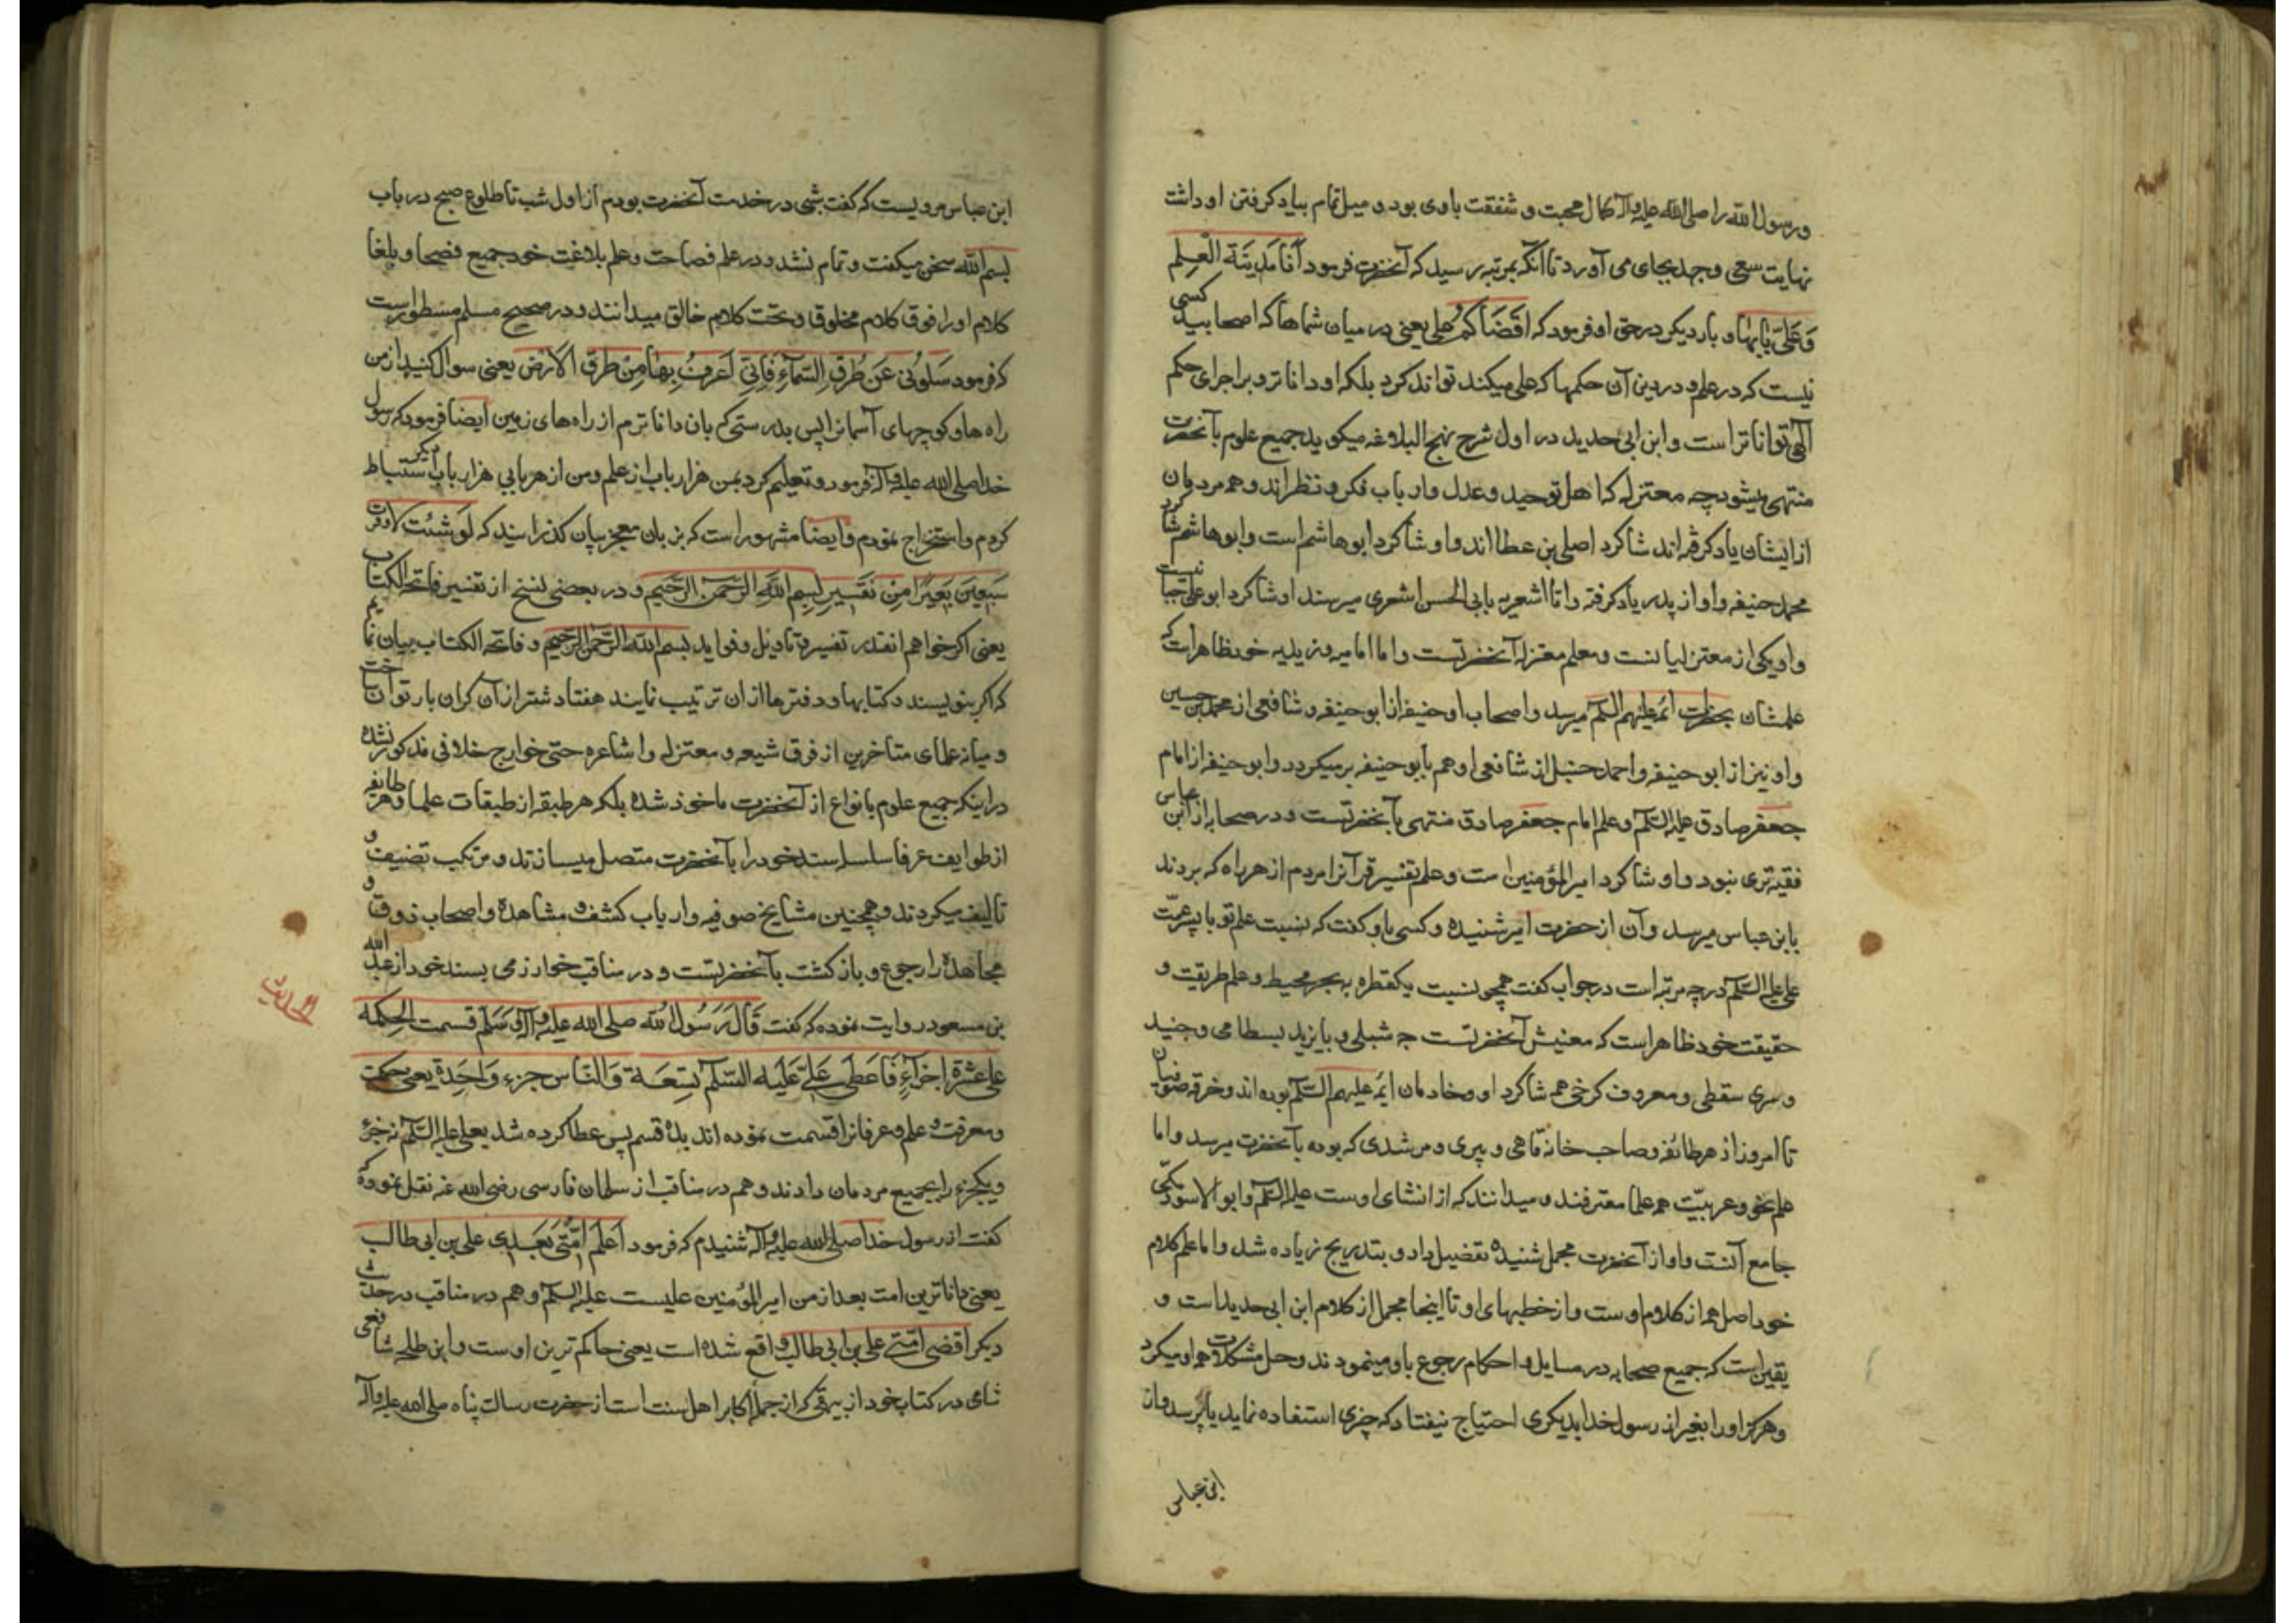 ورسول الله را صلی الله علیه وآله کمال محبت و شفقت باوی بود و میل تمام بیاد کرفتن او داشت
نهایت سعی وجهد بجای می آورد تا آنکه بمرتبه رسید که آنحضرت فرمود أَنَا مَدِينَة الْعِلم
وَعَلِیّ بَابُهَا و بار دیکر در حق او فرمود که اَقضَاکُم علی یعنی در میان شماها که اصحابید کسی
نیست که در علم و در دین آن حکمها که علی میکند تواند کرد بلکه او داناتر و براجرای حکم
آلهی تواناتر است وابن ابی حدید در اول شرح نهج البلاغه میکوید جمیع علوم بآنحضرت
منتهی میشود چه معتزله که اهل توحید وعدل وارباب فکر و نظراند وهمه مردمان
از ایشان یاد کرفته اند شاکرد اصلی بن عطااند واو شاکرد ابوهاشم است وابوهاشم شاکرد
محمد حنیفه واو از پدر یاد کرفته واما اشعریه بابی الحسن اشعری میرسند او شاکرد ابوعلی جبائیست
واو یکی از معتزلیانست ومعلم معتزله آنحضرتست واما امامیه وزیدیه خود ظاهراست که
علمشان بحضرات ائمه علیهم السلم میرسد واصحاب ابو حنیفه از ابو حنیفه وشافعی از محمد بن حسین
واو نیز از ابو حنیفه واحمد حنبل از شافعی او هم بابو حنیفه برمیکردد وابو حنیفه از امام
جعفر صادق علیه السلم وعلم امام جعفر صادق منتهی بآنحضرتست ودر صحابه از ابن عباس
فقیه تری نبود واو شاکرد امیرالمؤمنین است وعلم تفسیر قرآنرا مردم از هر راه که بردند
بابن عباس میرسد وآن از حضرت امیر شنیده وکسی باو کفت که نسبت علم تو با پسر عمّت
علی علیه السلم در چه مرتبه است در جواب کفت همچو نسبت یکقطره به بحر محیط وعلم طریقت و
حقیقت خود ظاهر است که معنیش آنحضرتست چه شبلی وبایزید بسطامی وجنید
وسری سقطی ومعروف کرخی همه شاکرد او وخادمان ایمه علیهم السلم بوده اند وخرقه صوفیان
تا امروز از هر طائفه وصاحب خانقاهی وپیری ومرشدی که بوده بآنحضرت میرسد واما
علم نحو وعربیّت همه علما معترفند ومیدانند که از انشای اوست علیه السلم وابوالاسود
جامع آنست واو از آنحضرت مجمل شنیده تفضیل داد وبتدریج زیاده شد واما علم کلام
خود اصل همه از کلام اوست واز خطبهای او تا اینجا مجمل از کلام ابن ابی حدید است و
یقین است که جمیع صحابه در مسایل واحکام رجوع باو مینمودند وحل مشکلات همه او میکرد
وهرکز او را بغیر از رسول خدا بدیکری احتیاج نیفتاد که چیزی استفاده نماید یا پرسد واز
ابن عباس
ابن عباس مرویست که کفت شبی در خدمت آنحضرت بودم از اول شب تا طلوع صبح در باب
بسم الله سخن میکفت وتمام نشد ودر علم فصاحت وعلم بلاغت خود جمیع فصحا وبلغا
کلام او را فوق کلام مخلوق وتحت کلام خالق میدانند ودر صحیح مسلم مسطور است
که فرمود سَلُونی عَن طُرُقِ السَّمآءِ فَاِنّی اَعرِفُ بِهَا مِنْ طُرُقِ الاَرضِ یعنی سوال کنید از من
راه ها وکوچهای آسمانرا پس بدرستی که بان داناترم از راه های زمین ایضا فرمود که رسول
خدا صلی الله علیه وآله فرمود وتعلیم کرد بمن هزار باب از علم ومن از هر بابی هزار باب دیکر استنباط
کردم واستخراج نمودم وایضا مشهور است که بزبان معجز بیان کذرانیدند که لَو شئت لاوقرت
سَبعِینَ بَعِیرًا مِنْ تَفسِیرِ بِسِمِ اللهِ الرَّحمنِ الرَّحیم ودر بعضی نسخ از تفسیر فاتحة الکتاب
یعنی اکر خواهم انقدر تفسیر وتاویل وفواید بسم الله الرحمن الرحیم وفاتحة الکتاب بیان نمایم
که اکر بنویسند وکتابها ودفترها از ان ترتیب نمایند هفتاد شتر از آن کران بار توان ساخت
ومیانه علمای متاخرین از فرق شیعه ومعتزله واشاعره حتی خوارج خلافی مذکور نشده
در اینکه جمیع علوم بانواع از آنحضرت ماخوذ شده بلکه هر طبقه از طبقات علما وهر طایفه
از طوایف عرفا سلسله سند خود را بآنحضرت متصل میسازند ومرتکب تصنیف و
تالیف میکردند وهمچنین مشایخ صوفیه وارباب کشف ومشاهده واصحاب ذوق و
مجاهده را رجوع وبازکشت بآنحضرتست ودر مناقب خوارزمی بسند خود از عبد الله
بن مسعود روایت نموده که کفت قَالَ رَسُولُ الله صلی الله علیه وآله وَسَلّم قسمت الحِکمة
الحدیث
علی عشرة اجزآءٍ فَاعطی عَلِیّ عَلَیه السّلم تِسعَة وَالنّاس جزء وَاحِدة یعنی حکمت
ومعرفت وعلم وعرفانرا قسمت نموده اند بده قسم پس عطا کرده شد بعلی علیه السلم نه جزء
ویکجزء را بجمیع مردمان دادند وهم در مناقب از سلمان فارسی رضی الله عنه نقل نموده که
کفت از رسول خدا صلی الله علیه وآله شنیدم که فرمود اَعلَم اُمَّتی بَعدی علی بن ابی طالب
یعنی داناترین امت بعد از من امیرالمؤمنین علیست علیه السلم وهم در مناقب در حدیث
دیکر اقضی امّتی علی بن ابی طالب واقع شده است یعنی حاکم ترین اوست وابن طلحه شافعی
شامی در کتاب خود از بیهقی که از جمله اکابر اهل سنت است از حضرت رسالت پناه صلی الله علیه وآله